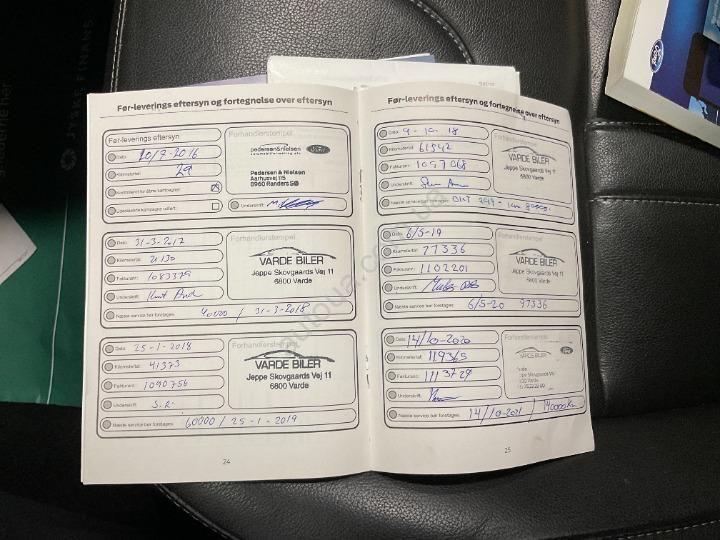 Før-leverings eftersyn og fortegnelse over eftersyn
Før-leverings eftersyn
Dato: 20/9-2016
Kilometertal: 29
Forhandlerstempel
pedersen&nielsen
Ford
Pedersen & Nielsen
Aarhusvej 175
8960 Randers SØ
Underskrift:
Dato: 31-3-2017
Kilometertal: 21130
Fakturanr: 1083379
Underskrift:
Næste service bør foretages: 40000 / 31-3-2018
Forhandlerstempel
VARDE BILER
Jeppe Skovgaards Vej 11
6800 Varde
Dato: 25-1-2018
Kilometertal: 41373
Fakturanr: 1090756
Underskrift:
Næste service bør foretages: 60000 / 25-1-2019
Forhandlerstempel
VARDE BILER
Jeppe Skovgaards Vej 11
6800 Varde
24
Før-leverings eftersyn og fortegnelse over eftersyn
Dato: 9-10-18
Kilometertal: 61542
Fakturanr: 1097068
Underskrift:
Næste service bør foretages: OKT 2019
Forhandlerstempel
VARDE BILER
Jeppe Skovgaards Vej 11
6800 Varde
Dato: 6/5-19
Kilometertal: 77336
Fakturanr: 1102201
Underskrift:
Næste service bør foretages: 6/5-20 97336
Forhandlerstempel
VARDE BILER
Jeppe Skovgaards Vej 11
6800 Varde
Dato: 14/10-2020
Kilometertal: 119365
Fakturanr: 1113729
Underskrift:
Næste service bør foretages: 14/10-2021 / 140000 km
Forhandlerstempel
Ford
VARDE BILER
Jeppe Skovgaards Vej 11
6800 Varde
25
JYSKE FINANS
Ford